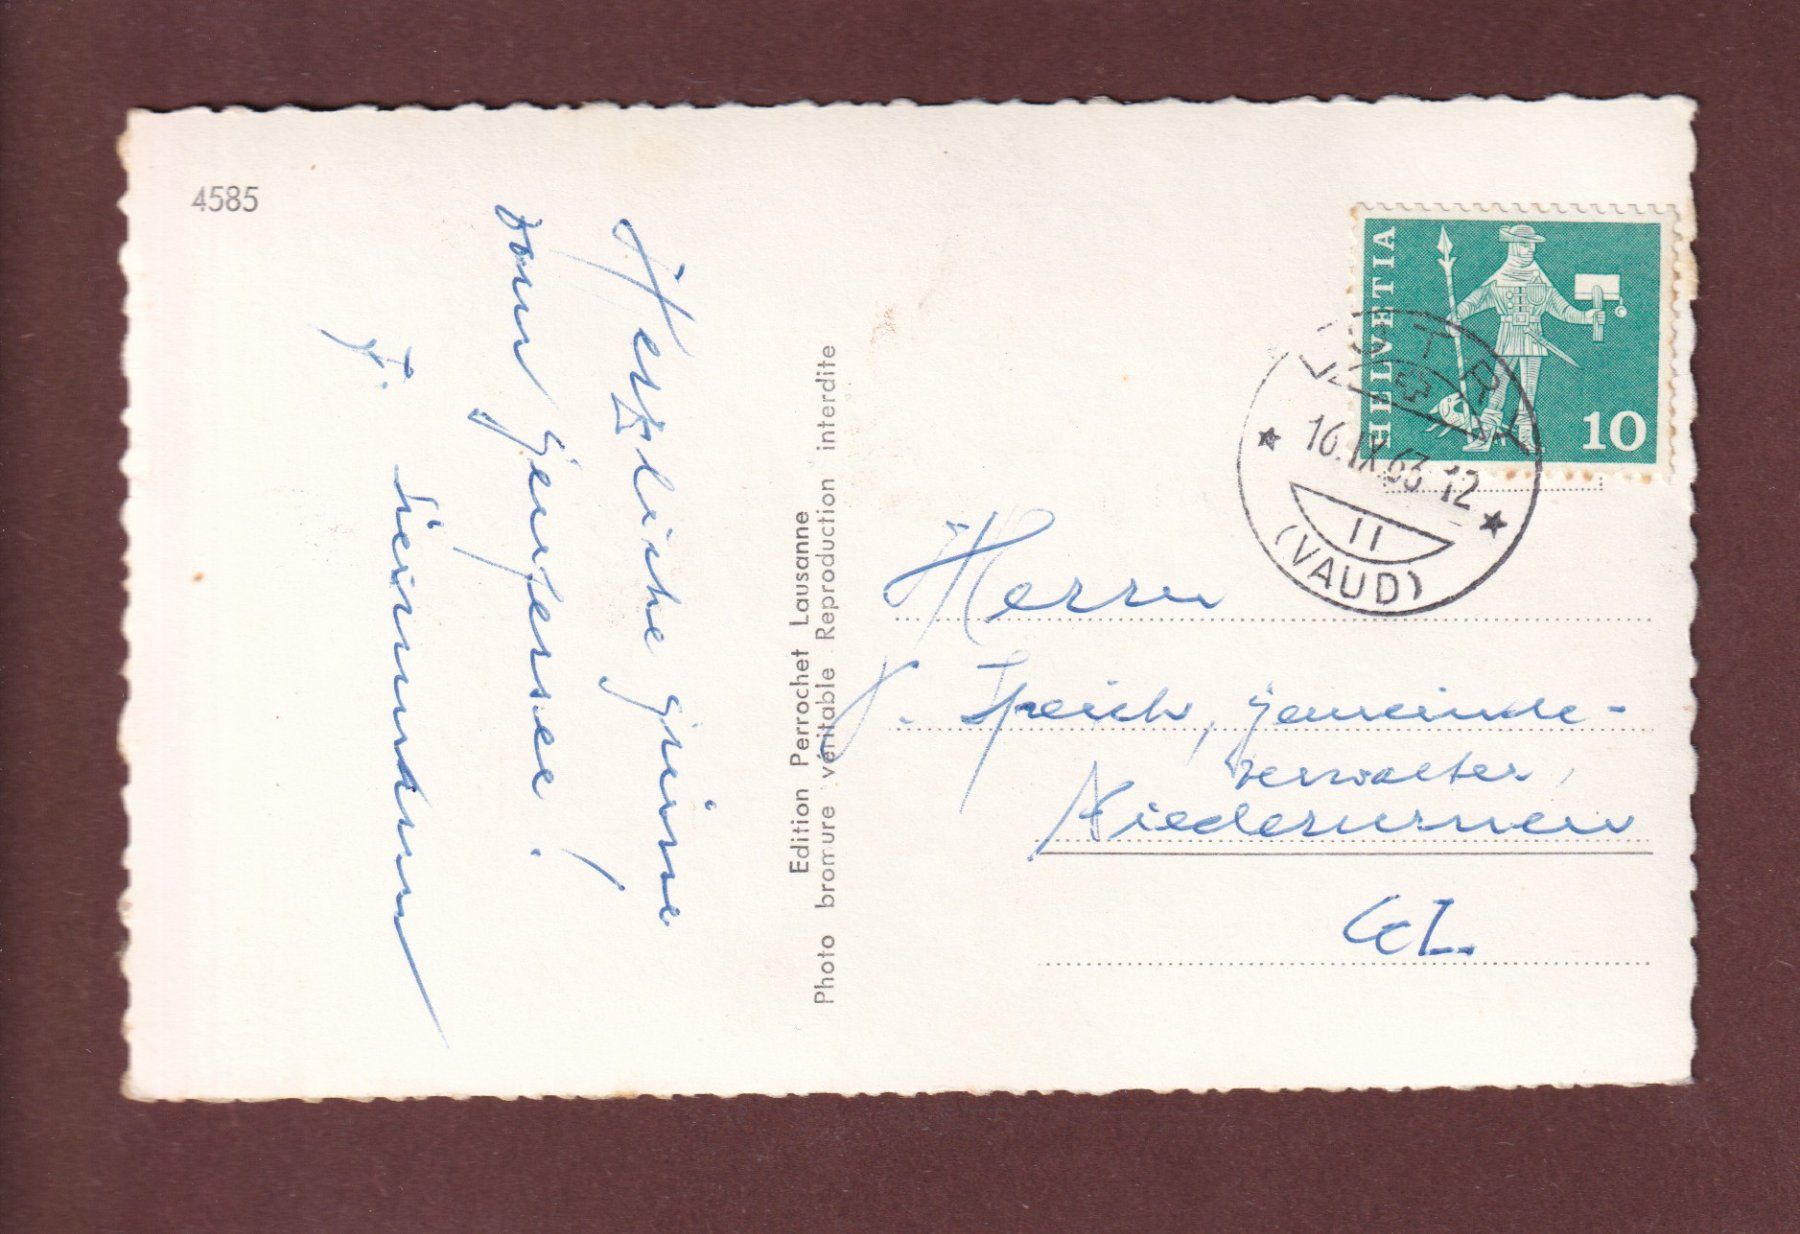 4585
Herzliche Grüsse
vom Genfersee!
F.
Edition Perrochet Lausanne
Photo bromure véritable Reproduction interdite
HELVETIA
10
LUTRY
16.IX.63-12
11
(VAUD)
Herrn
J. Speich, Gemeinde-
verwalter,
Niederurnen
GL.